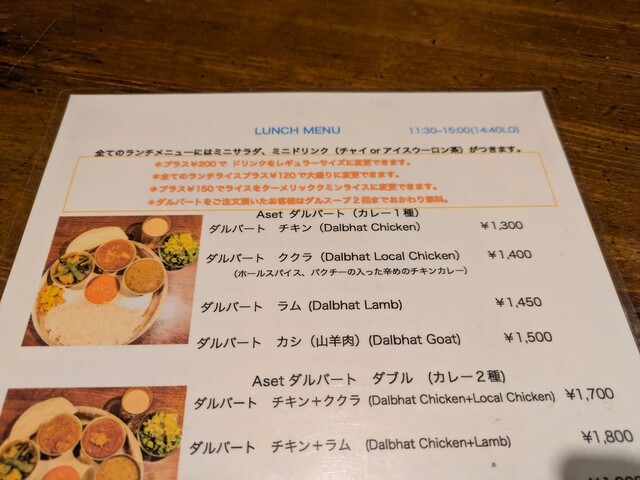 LUNCH MENU 11:30-15:00(14:40LO)
全てのランチメニューにはミニサラダ、ミニドリンク（チャイ or アイスウーロン茶）がつきます。
＊プラス¥200で ドリンクをレギュラーサイズに変更できます。
＊全てのランチライスプラス¥120で大盛りに変更できます。
＊プラス¥150でライスをターメリッククミンライスに変更できます。
＊ダルバートをご注文頂いたお客様はダルスープ2回までおかわり無料。
Aset ダルバート（カレー１種）
ダルバート チキン (Dalbhat Chicken) ¥1,300
ダルバート ククラ (Dalbhat Local Chicken) ¥1,400
（ホールスパイス、パクチーの入った辛めのチキンカレー）
ダルバート ラム (Dalbhat Lamb) ¥1,450
ダルバート カシ（山羊肉）(Dalbhat Goat) ¥1,500
Aset ダルバート ダブル （カレー２種)
ダルバート チキン＋ククラ (Dalbhat Chicken+Local Chicken) ¥1,700
ダルバート チキン＋ラム (Dalbhat Chicken+Lamb) ¥1,800